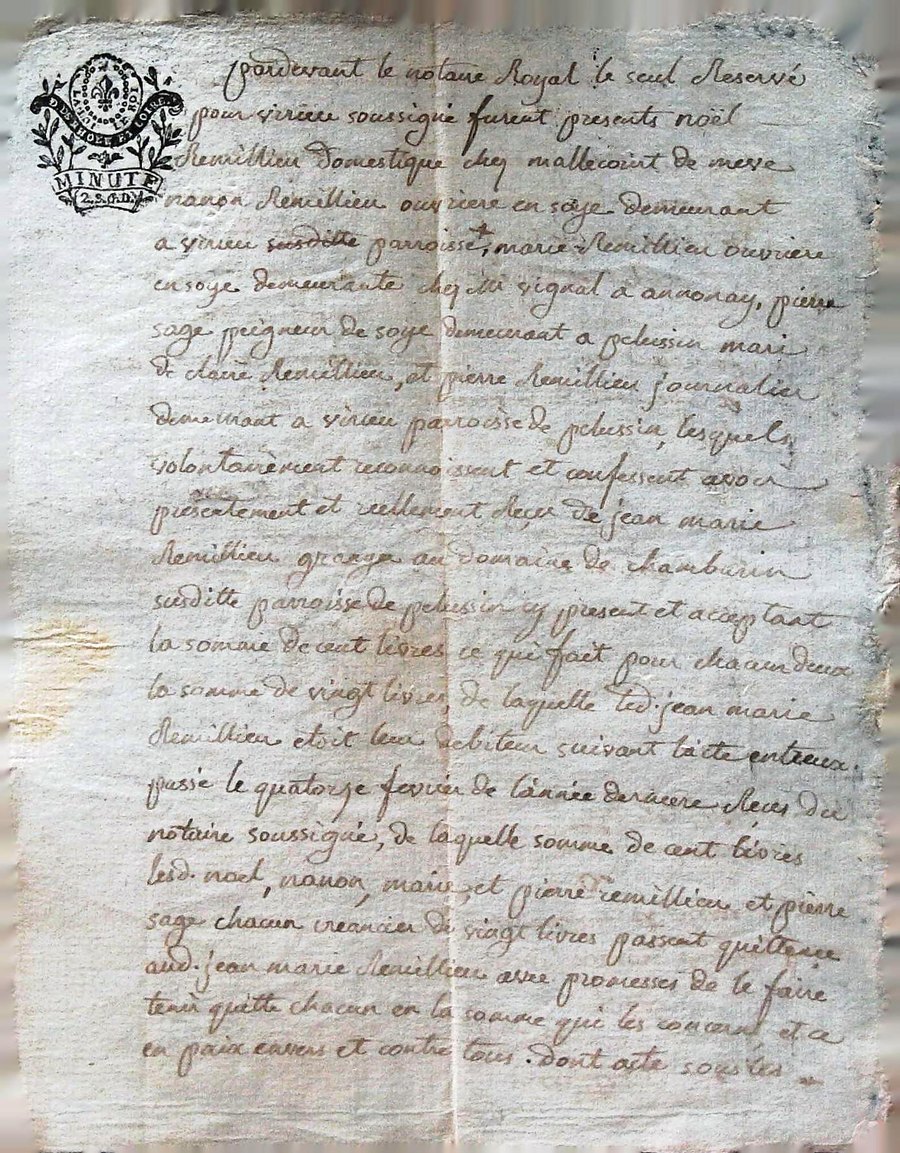 LA LOI ET LE ROI
D. DE RHONE ET LOIRE
MINUTE
2.S.6.D.
pardevant le notaire Royal le seul Reservé
pour virieu soussigné furent presents noël
Remillieu domestique chez mallecourt de meve
nanon Remillieu ouvriere en soye demeurant
a virieu susditte parroisse, marie Remillieu ouvriere
en soye demeurante chez Mr vignal a annonay, pierre
sage peigneur de soye demeurant a pelussin mari
de claire Remillieu, et pierre Remillieu journalier
demeurant a virieu parroisse de pelussin, lesquels
volontairement reconnoissent et confessent avoir
présentement et réellement Reçu de jean marie
Remillieu granger au domaine de chamburin
susditte parroisse de pelussin cy present et acceptant
la somme de cent livres ce qui fait pour chacun deux
la somme de vingt livres de laquelle led. jean marie
Remillieu etoit leur debiteur suivant lacte entreux
passé le quatorze fevrier de lannée derniere Reçu du
notaire soussigné, de laquelle somme de cent livres
lesd. noel, nanon, marie, et pierre remillieu et pierre
sage chacun creancier de vingt livres passent quittance
aud. jean marie Remillieu avec promesses de le faire
tenir quitte chacun en la somme qui les concerne et ce
en paix envers et contre tous. dont acte sous les